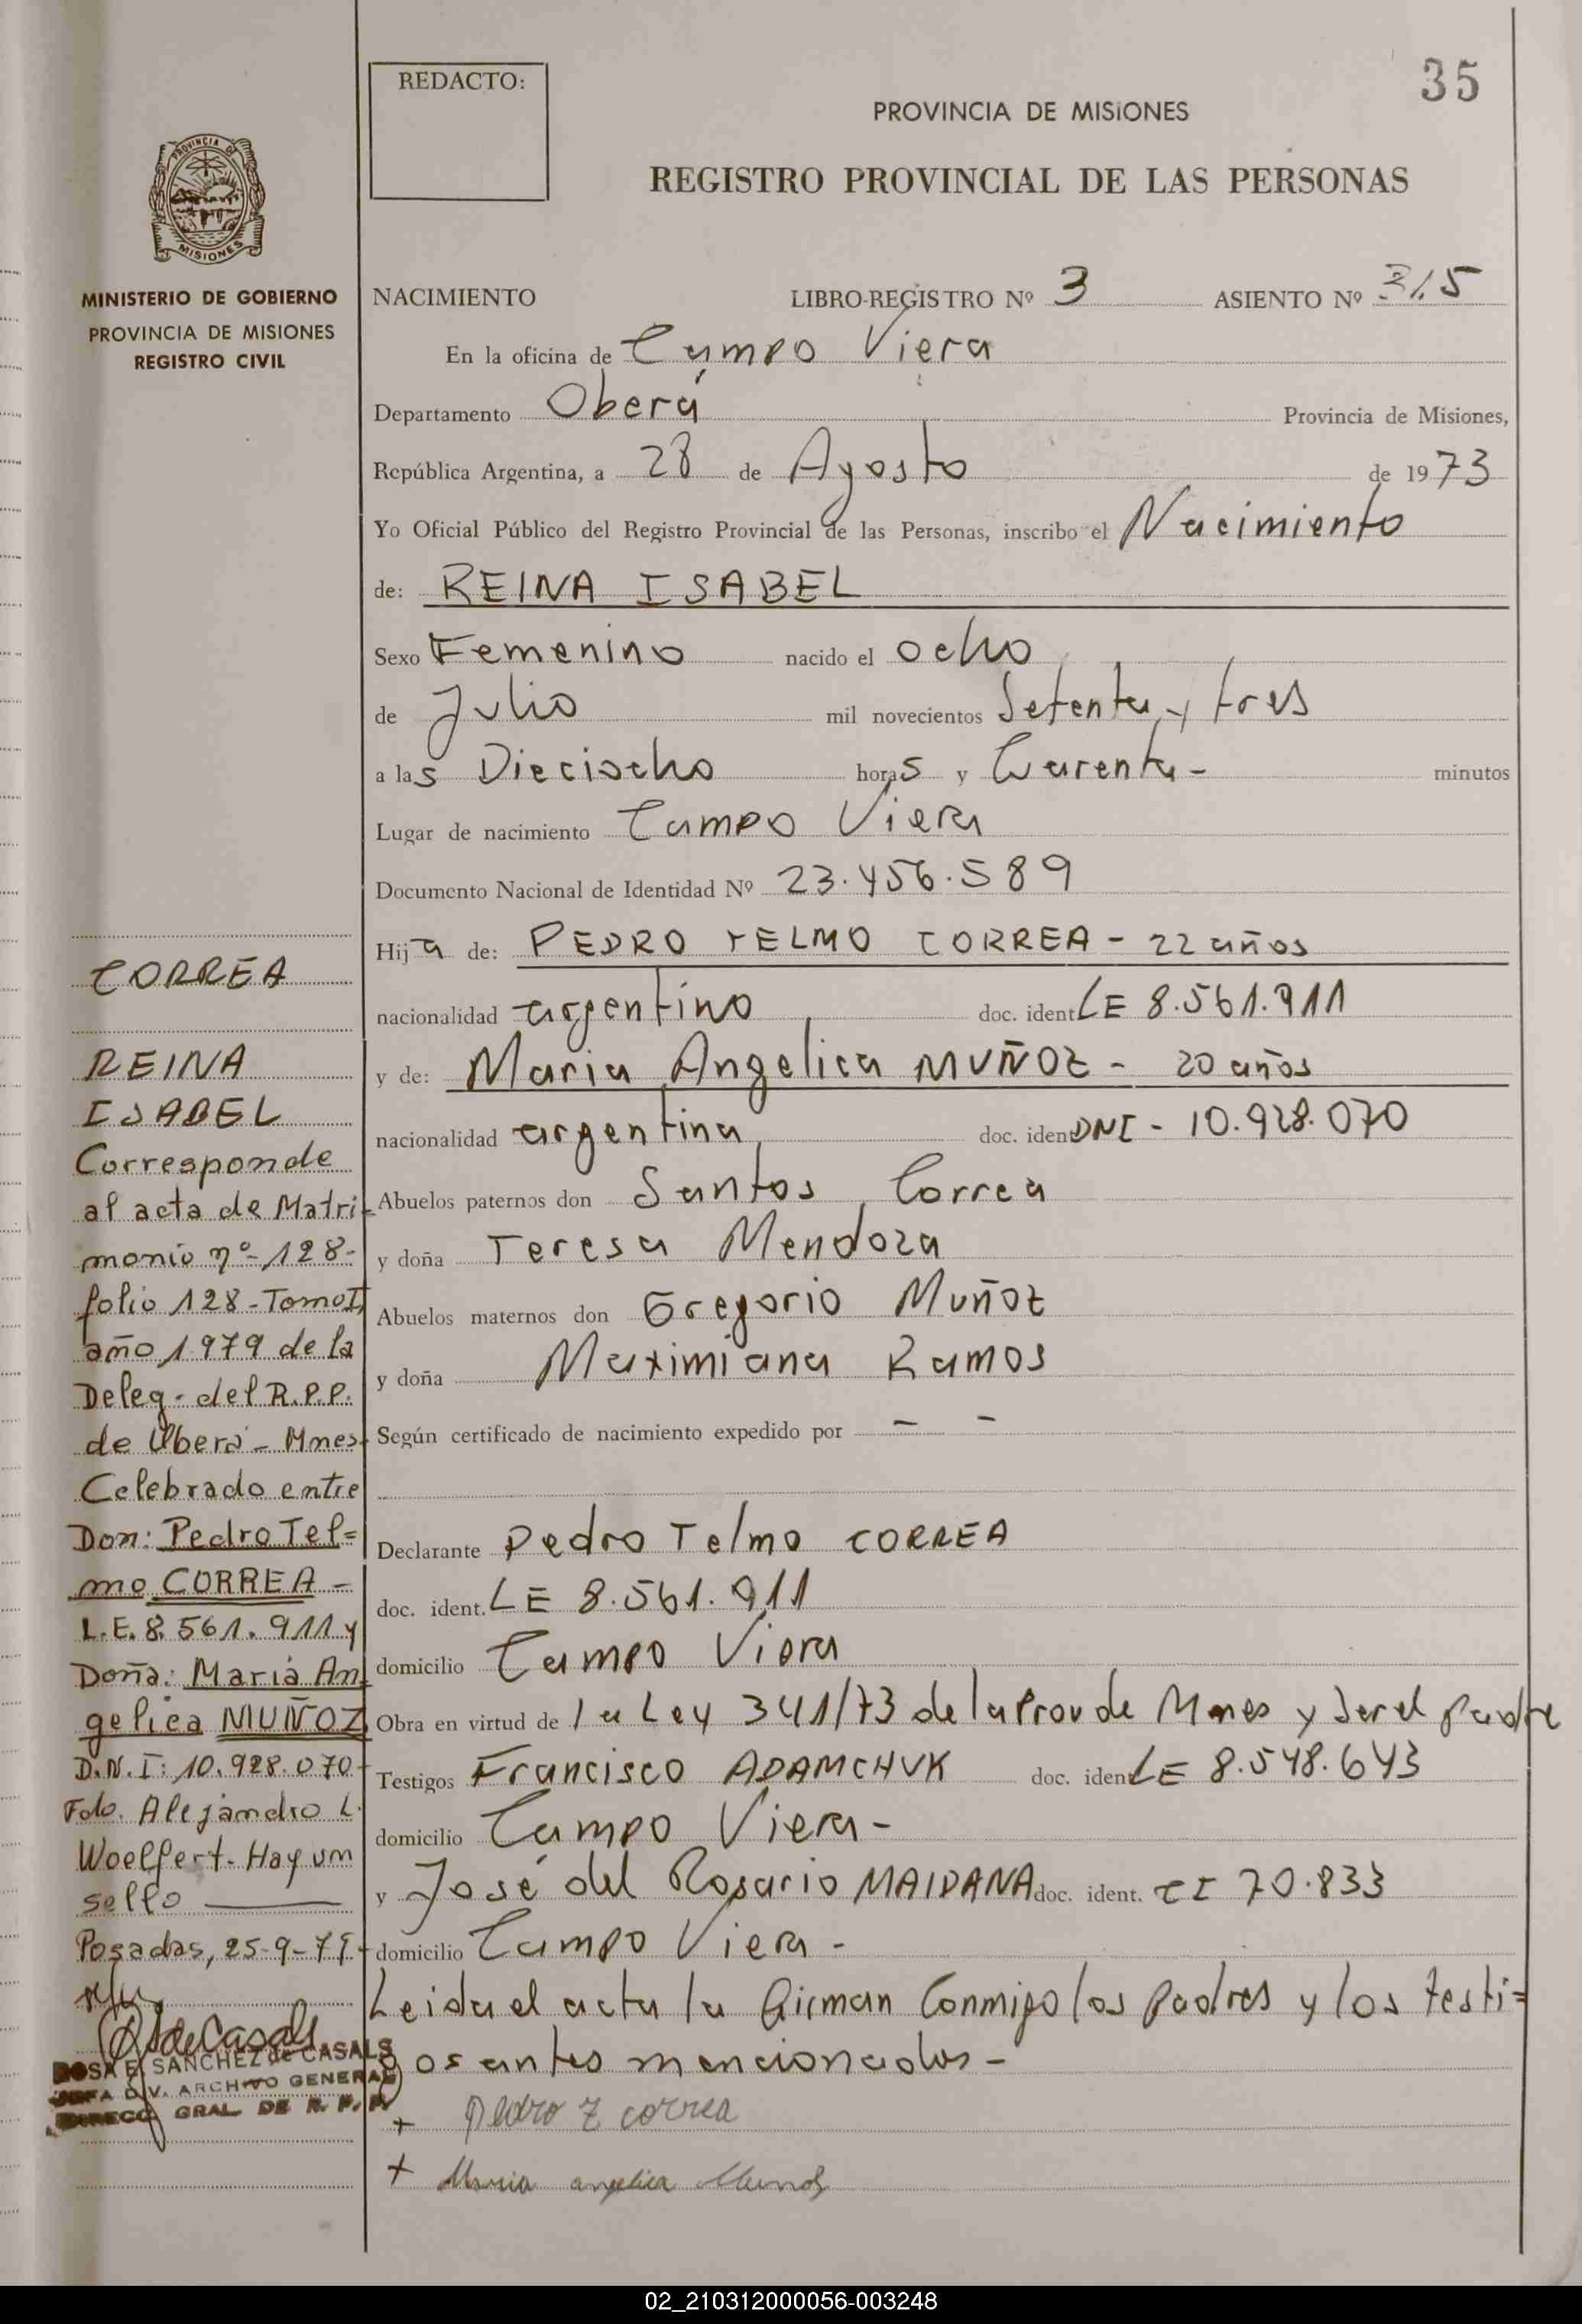 35
REDACTO:
PROVINCIA DE MISIONES
REGISTRO PROVINCIAL DE LAS PERSONAS
PROVINCIA DE
MISIONES
MINISTERIO DE GOBIERNO
PROVINCIA DE MISIONES
REGISTRO CIVIL
NACIMIENTO LIBRO-REGISTRO Nº 3 ASIENTO Nº 315
En la oficina de Campo Viera
Departamento Oberá Provincia de Misiones,
República Argentina, a 28 de Agosto de 1973
Yo Oficial Público del Registro Provincial de las Personas, inscribo el Nacimiento
de: REINA ISABEL
Sexo Femenino nacido el ocho
de Julio mil novecientos Setenta y tres
a las Dieciocho horas y Cuarenta - minutos
Lugar de nacimiento Campo Viera
Documento Nacional de Identidad Nº 23.456.589
Hija de: PEDRO TELMO CORREA - 22 años
nacionalidad argentino doc. ident LE 8.561.911
y de: Maria Angelica MUÑOZ - 20 años
nacionalidad argentina doc. iden DNI - 10.928.070
Abuelos paternos don Santos Correa
y doña Teresa Mendoza
Abuelos maternos don Gregorio Muñoz
y doña Maximiana Ramos
Según certificado de nacimiento expedido por - -
Declarante Pedro Telmo CORREA
doc. ident. LE 8.561.911
domicilio Campo Viera
Obra en virtud de la Ley 341/73 de la Prov de Mnes y ser el padre
Testigos Francisco ADAMCHUK doc. iden LE 8.548.643
domicilio Campo Viera -
y José del Rosario MAIDANA doc. ident. CI 70.833
domicilio Campo Viera -
Leida el acta la firman Conmigo los padres y los testi=
gos antes mencionados -
+ Pedro T correa
+ Maria angelica Munoz
CORREA
REINA
ISABEL
Corresponde
al acta de Matri-
monio nº 128-
folio 128-Tomo I
año 1979 de la
Deleg. del R.P.P.
de Oberá - Mnes-
Celebrado entre
Don: Pedro Tel=
mo CORREA -
L.E. 8.561.911 y
Doña: Maria An-
gelica MUÑOZ
D.N.I: 10.928.070-
Fdo. Alejandro L.
Woelfert. Hay um
sello
Posadas, 25-9-79-
ROSA E. SANCHEZ de CASALS
JEFA DIV. ARCHIVO GENERAL
DIRECC. GRAL DE R. P. P.
02_210312000056-003248